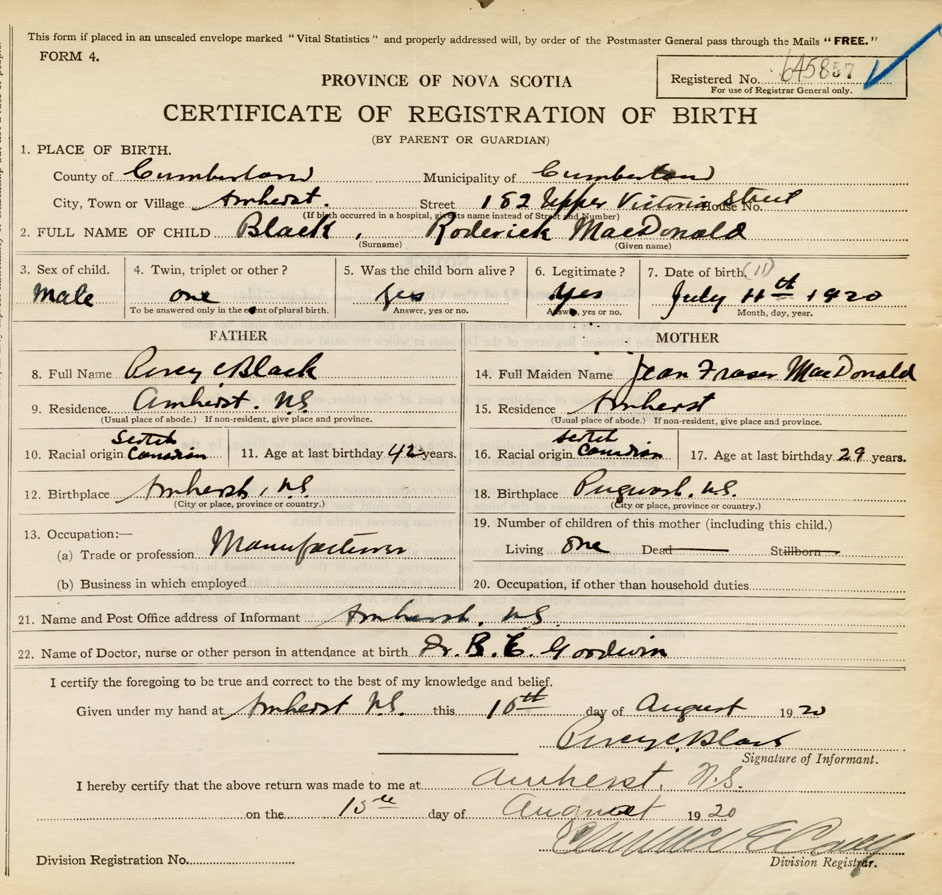 This form if placed in an unsealed envelope marked "Vital Statistics" and properly addressed will, by order of the Postmaster General pass through the Mails "FREE."
FORM 4.
Registered No. 645857
For use of Registrar General only.
PROVINCE OF NOVA SCOTIA
CERTIFICATE OF REGISTRATION OF BIRTH
(BY PARENT OR GUARDIAN)
1. PLACE OF BIRTH.
County of Cumberland Municipality of Cumberland
City, Town or Village Amherst. Street 182 Upper Victoria Street House No.
(If birth occurred in a hospital, give its name instead of Street and Number)
2. FULL NAME OF CHILD Black, Roderick MacDonald
(Surname) (Given name)
3. Sex of child. 4. Twin, triplet or other? 5. Was the child born alive? 6. Legitimate? 7. Date of birth. (11)
Male one Yes Yes July 11th 1920
To be answered only in the event of plural birth. Answer, yes or no. Answer, yes or no. Month, day, year.
FATHER
8. Full Name Percy C Black
9. Residence. Amherst. N.S.
(Usual place of abode.) If non-resident, give place and province.
10. Racial origin Scotch Canadian 11. Age at last birthday 42 years.
12. Birthplace Amherst, N.S.
(City or place, province or country.)
13. Occupation:—
(a) Trade or profession Manufacturer
(b) Business in which employed
MOTHER
14. Full Maiden Name Jean Fraser MacDonald
15. Residence Amherst
(Usual place of abode.) If non-resident, give place and province.
16. Racial origin Scotch Canadian 17. Age at last birthday 29 years.
18. Birthplace Pugwash. N.S.
(City or place, province or country.)
19. Number of children of this mother (including this child.)
Living one Dead Stillborn
20. Occupation, if other than household duties
21. Name and Post Office address of Informant Amherst. N.S.
22. Name of Doctor, nurse or other person in attendance at birth Dr. B. E. Goodwin
I certify the foregoing to be true and correct to the best of my knowledge and belief.
Given under my hand at Amherst N.S. this day of August 1920
Percy C Black
Signature of Informant.
I hereby certify that the above return was made to me at Amherst. N.S.
on the 15th day of August 1920
Division Registrar.
Division Registration No.